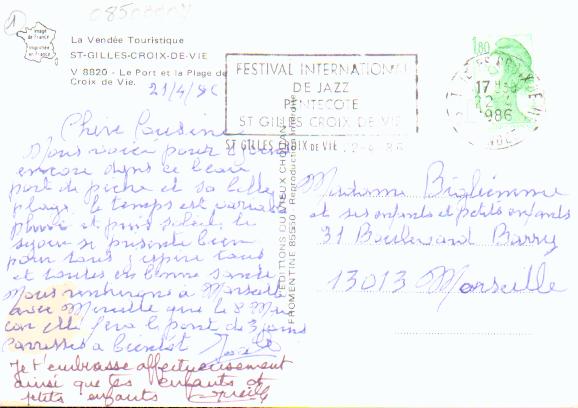 1
0850000
Image
de France
imprimée
en France
La Vendée Touristique
ST-GILLES-CROIX-DE-VIE
V 8820 - Le Port et la Plage de
Croix de Vie.
21/4/86
FESTIVAL INTERNATIONAL
DE JAZZ
PENTECOTE
ST GILLES CROIX DE VIE
ST GILLES CROIX DE VIE 22-4-86
1,80
17 H
22-4
1986
Chère Cousine
Nous voici pour
encore dans ce beau
port de pêche et sa belle
plage. le temps est variable
pluie et puis soleil. le
séjour se présente bien
pour tous j'espère tous
et toutes en bonne santé
Nous rentrerons à Marseille
avec Mireille que le 8 Mai
car elle fera le pont de 3 jours
Caresses à bientôt
Je t'embrasse affectueusement
ainsi que tes enfants et
petits enfants
EDITIONS DU VIEUX CHOUAN
FROMENTINE 85550 - Reproduction interdite
Madame
et ses enfants et petits enfants
31 Boulevard Barry
13013 Marseille